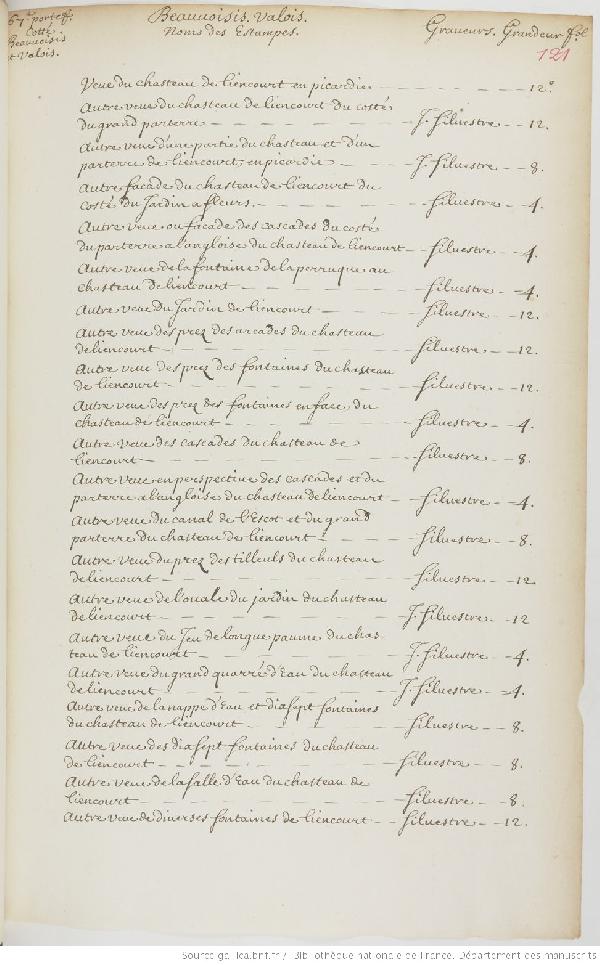 67.e portef.
Cotté
Beauuoisis
et Valois.
Beauuoisis. Valois.
Noms des Estampes.
Graueurs. Grandeur fol
121
Veue du chasteau de liencourt en picardie — 12.
Autre veue du chasteau de liencourt du costé
du grand parterre — J. Siluestre — 12.
Autre veue d'une partie du chasteau et d'un
parterre de liencourt, en picardie — J. Siluestre — 8.
Autre facade du chasteau de liencourt du
costé du Jardin a fleurs. — Siluestre — 4.
Autre veue ou facade des cascades du costé
du parterre a langloise du chasteau de liencourt — Siluestre — 4.
Autre veue de la fontaine de la perruque au
chasteau de liencourt — Siluestre — 4.
Autre veue du Jardin de liencourt — Siluestre — 12.
Autre veue des prez des arcades du chasteau
de liencourt — Siluestre — 12.
Autre veue des prez des fontaines du chasteau
de liencourt — Siluestre — 12.
Autre veue des prez des fontaines en face du
chasteau de liencourt — Siluestre — 4.
Autre veue des cascades du chasteau de
liencourt — Siluestre — 8.
Autre veue en perspectiue des cascades et du
parterre a langloise du chasteau de liencourt — Siluestre — 4.
Autre veue du canal de l'Escot et du grand
parterre du chasteau de liencourt — Siluestre — 8.
Autre veue du prez des tilleuls du chasteau
de liencourt — Siluestre — 12
Autre veue de l'ouale du jardin du chasteau
de liencourt — J. Siluestre — 12
Autre veue du Jeu de longue paume du chas-
teau de liencourt — J. Siluestre — 4.
Autre veue du grand quarré d'Eau du chasteau
de liencourt — J. Siluestre — 4.
Autre veue de la nappe d'Eau et dixsept fontaines
du chasteau de liencourt — Siluestre — 8.
Autre veue des dixsept fontaines du chasteau
de liencourt — Siluestre — 8.
Autre veue de la salle d'Eau du chasteau de
liencourt — Siluestre — 8.
Autre veue de diuerses fontaines de liencourt — Siluestre — 12.
Source gallica.bnf.fr / Bibliothèque nationale de France. Département des manuscrits